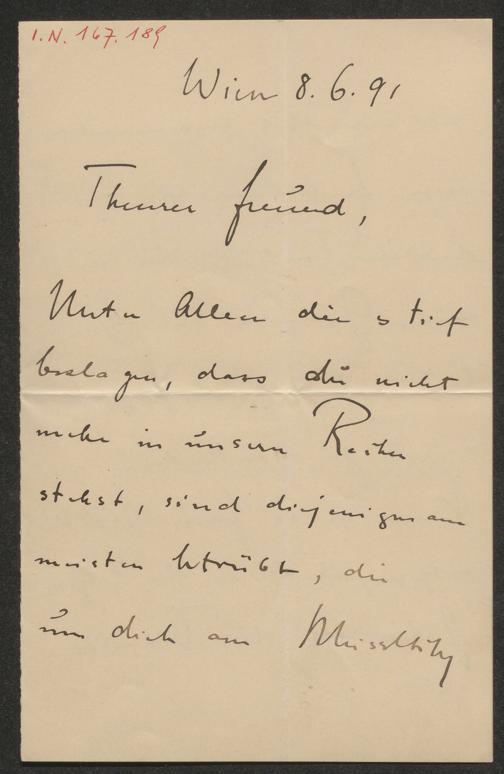 I.N. 167.189
Wien 8.6.91
Theurer Freund,
Unter Allen die es tief
beklagen, dass du nicht
mehr in unsern Reihen
stehst, sind diejenigen am
meisten betrübt, die
um dich am